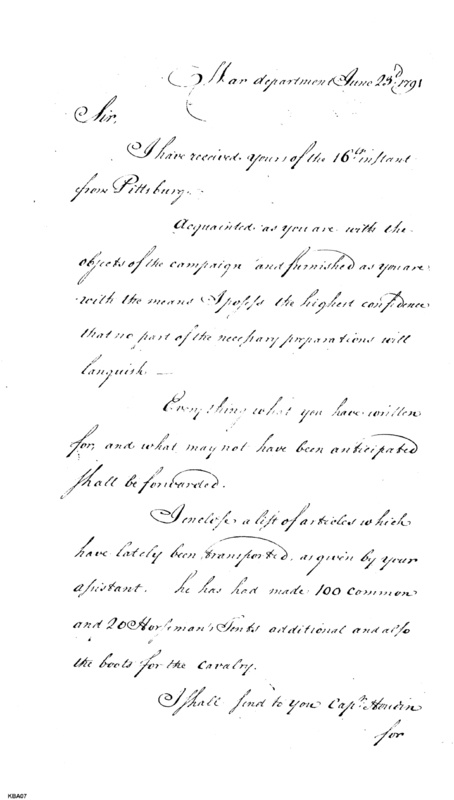 War department June 23d. 1791
Sir,
I have received yours of the 16th. instant
from Pittsburg.
Acquainted as you are with the
objects of the campaign and furnished as you are
with the means I possess the highest confidence
that no part of the necessary preparations will
languish —
Every thing what you have written
for, and what may not have been anticipated
shall be forwarded.
I enclose a list of articles which
have lately been transported, as given by your
assistant. he has had made 100 common
and 20 Horseman's Tents additional and also
the boots for the cavalry.
I shall send to you Capt. Houdin
for
KBA07